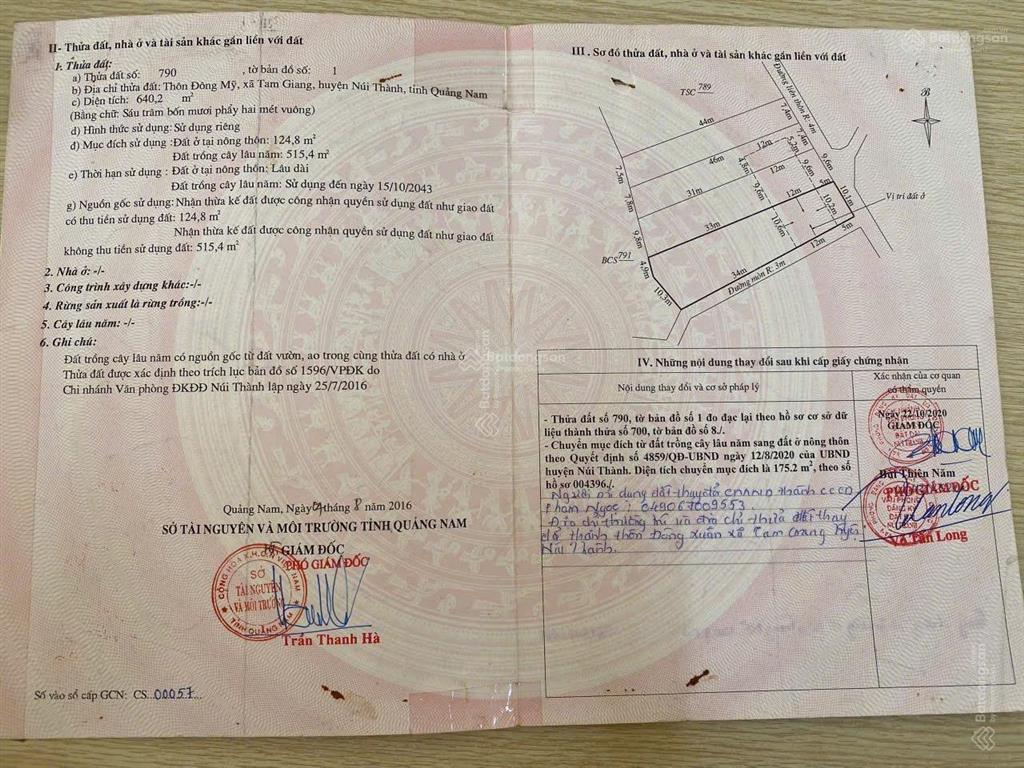 II- Thửa đất, nhà ở và tài sản khác gắn liền với đất
1. Thửa đất:
a) Thửa đất số: 790 , tờ bản đồ số: 1
b) Địa chỉ thửa đất: Thôn Đông Mỹ, xã Tam Giang, huyện Núi Thành, tỉnh Quảng Nam
c) Diện tích: 640,2 m²
(Bằng chữ: Sáu trăm bốn mươi phẩy hai mét vuông)
d) Hình thức sử dụng: Sử dụng riêng
đ) Mục đích sử dụng :Đất ở tại nông thôn: 124,8 m²
Đất trồng cây lâu năm: 515,4 m²
e) Thời hạn sử dụng : Đất ở tại nông thôn: Lâu dài
Đất trồng cây lâu năm: Sử dụng đến ngày 15/10/2043
g) Nguồn gốc sử dụng: Nhận thừa kế đất được công nhận quyền sử dụng đất như giao đất
có thu tiền sử dụng đất: 124,8 m²
Nhận thừa kế đất được công nhận quyền sử dụng đất như giao đất
không thu tiền sử dụng đất: 515,4 m²
2. Nhà ở: -/-
3. Công trình xây dựng khác:-/-
4. Rừng sản xuất là rừng trồng:-/-
5. Cây lâu năm: -/-
6. Ghi chú:
Đất trồng cây lâu năm có nguồn gốc từ đất vườn, ao trong cùng thửa đất có nhà ở
Thửa đất được xác định theo trích lục bản đồ số 1596/VPĐK do
Chi nhánh Văn phòng ĐKĐĐ Núi Thành lập ngày 25/7/2016
Quảng Nam, Ngày tháng 8 năm 2016
SỞ TÀI NGUYÊN VÀ MÔI TRƯỜNG TỈNH QUẢNG NAM
GIÁM ĐỐC
PHÓ GIÁM ĐỐC
CỘNG HÒA X.H.C.N VIỆT NAM
SỞ
TÀI NGUYÊN
VÀ MÔI TRƯỜNG
TỈNH QUẢNG NAM
Trần Thanh Hà
Số vào sổ cấp GCN: CS 00057
III. Sơ đồ thửa đất, nhà ở và tài sản khác gắn liền với đất
TSC 789
Đường liên thôn R: 4m
B
44m
7,4m
46m
12m
5,2m
7,4m
7,5m
4,8m
9,6m
9,6m
31m
12m
7,8m
9,6m
12m
10,1m
10,2m
Vị trí đất ở
33m
10,6m
5m
9,8m
12m
BCS 791
4,9m
34m
10,3m
Đường mòn R: 3m
IV. Những nội dung thay đổi sau khi cấp giấy chứng nhận
Nội dung thay đổi và cơ sở pháp lý
Xác nhận của cơ quan
có thẩm quyền
- Thửa đất số 790, tờ bản đồ số 1 đo đạc lại theo hồ sơ cơ sở dữ
liệu thành thửa số 700, tờ bản đồ số 8./.
- Chuyển mục đích từ đất trồng cây lâu năm sang đất ở nông thôn
theo Quyết định số 4859/QĐ-UBND ngày 12/8/2020 của UBND
huyện Núi Thành. Diện tích chuyển mục đích là 175.2 m², theo số
hồ sơ 004396./.
Ngày 22/10/2020
GIÁM ĐỐC
Bùi Thiên Năm
Người sử dụng đất thay đổi CMND thành CCCD
Phạm Ngọc : 049067009553
Địa chỉ thường trú và địa chỉ thửa đất thay
đổi thành thôn Đông Xuân xã Tam Giang huyện
Núi Thành.
PHÓ GIÁM ĐỐC
Võ Tấn Long
Batdongsan
Batdongsan
Batdongsan
Batdongsan